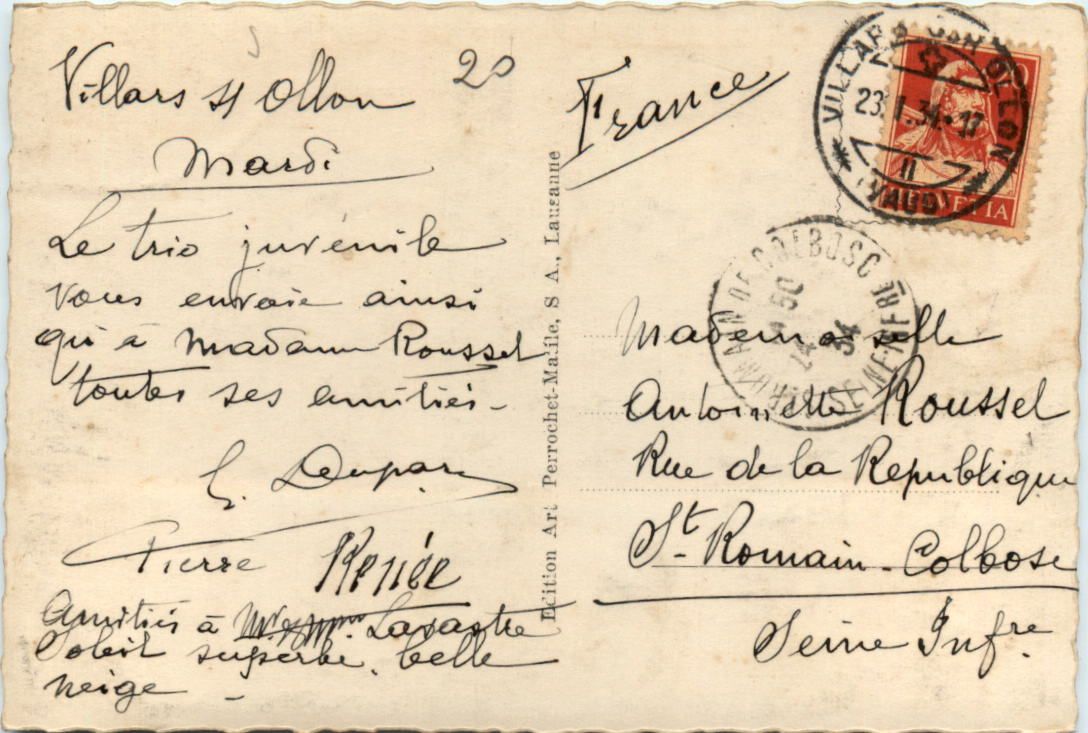 Villars s/ Ollon
20
Mardi
Le trio juvénile
vous envoie ainsi
qu'à Madame Roussel
toutes ses amitiés -
Pierre Renée
Amitiés à Mr et Mme. Lavastre
Soleil superbe, belle
neige -
Edition Art Perrochet-Matile, S A., Lausanne
France
VILLARS SUR OLLON
23. I. 34. 17
II
(VAUD)
HELVETIA
ST ROMAIN DE COLBOSC
SEINE INFRE
34
Mademoiselle
Antoinette Roussel
Rue de la Republique
St. Romain - Colbosc
Seine Infre.